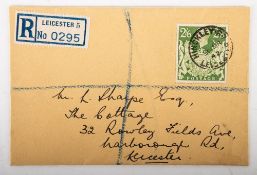 LEICESTER 5
R No 0295
2/6
M. L. Sharpe Esq,
The Cottage
32 Rowley Fields Ave,
Narborough Rd,
Leicester.